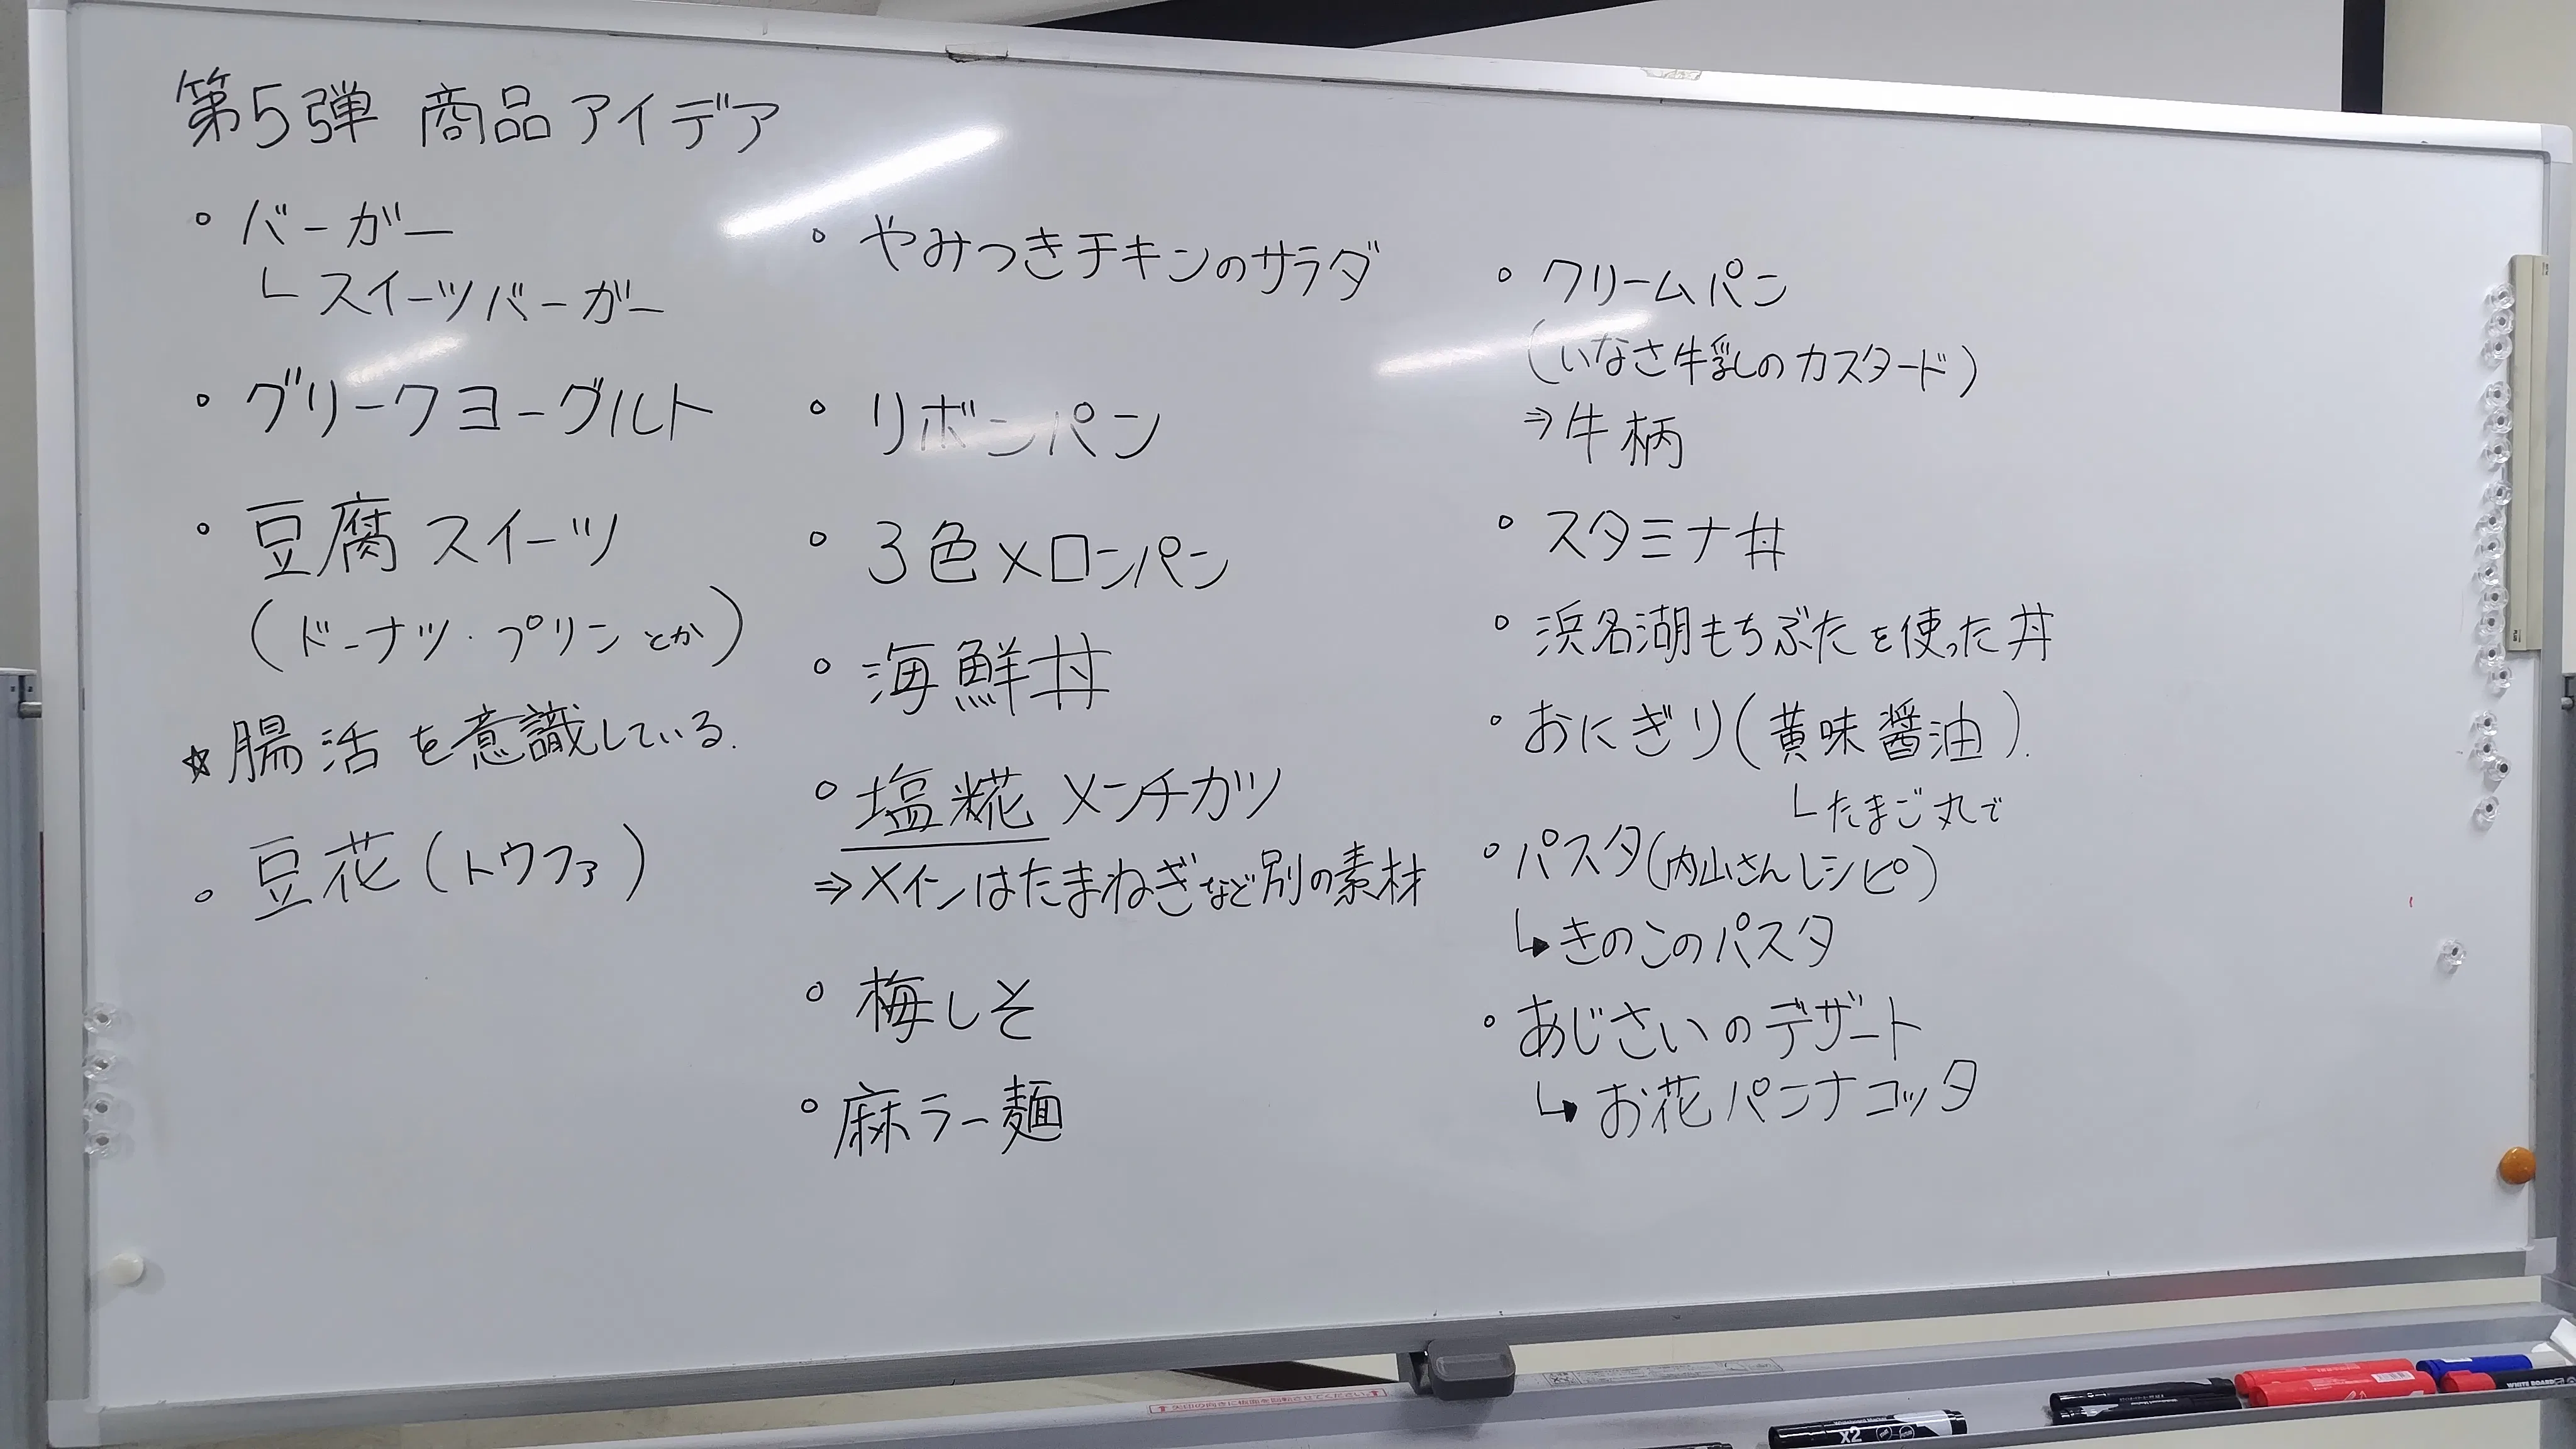 第5弾 商品アイデア
・バーガー
└スイーツバーガー
・グリークヨーグルト
・豆腐スイーツ
(ドーナツ・プリンとか)
☆腸活を意識している.
・豆花(トウファ)
・やみつきチキンのサラダ
・リボンパン
・3色メロンパン
・海鮮丼
・塩糀メンチカツ
⇒メインはたまねぎなど別の素材
・梅しそ
・麻ラー麺
・クリームパン
(いなさ牛乳のカスタード)
⇒牛柄
・スタミナ丼
・浜名湖もちぶたを使った丼
・おにぎり(黄味醤油).
└たまご丸で
・パスタ(内山さんレシピ)
↳きのこのパスタ
・あじさいのデザート
↳お花パンナコッタ
WHITE BOARD
x2